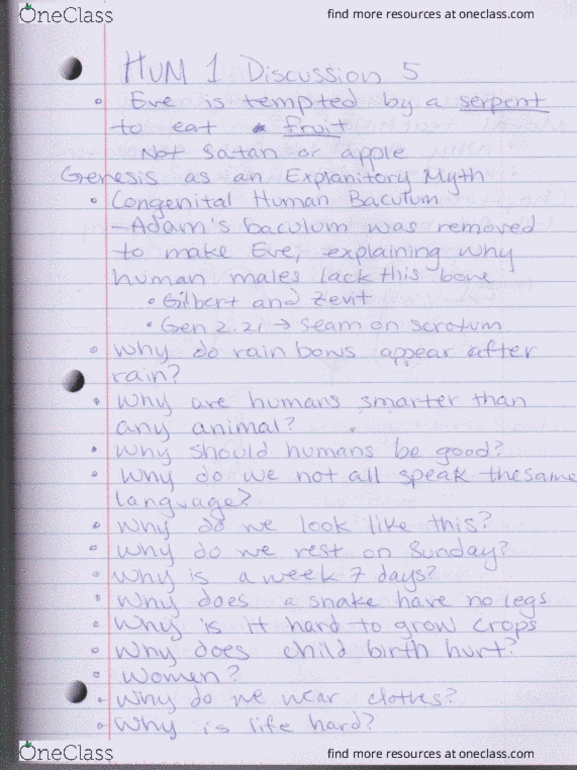 OneClass
find more resources at oneclass.com
HUM 1 Discussion 5
• Eve is tempted by a serpent
to eat a fruit
Not Satan or apple
Genesis as an Explanitory Myth
• Congenital Human Baculum
- Adam's baculum was removed
to make Eve, explaining why
human males lack this bone
• Gilbert and Zevit
• Gen 2.21 → seam on scrotum
• why do rainbows appear after
rain?
• Why are humans smarter than
any animal?
• Why should humans be good?
• Why do we not all speak the same
language?
• Why do we look like this?
• Why do we rest on Sunday?
• Why is a week 7 days?
• Why does a snake have no legs
• Why is it hard to grow crops
• Why does child birth hurt?
• Women?
• Why do we wear clothes?
• Why is life hard?
OneClass
find more resources at oneclass.com